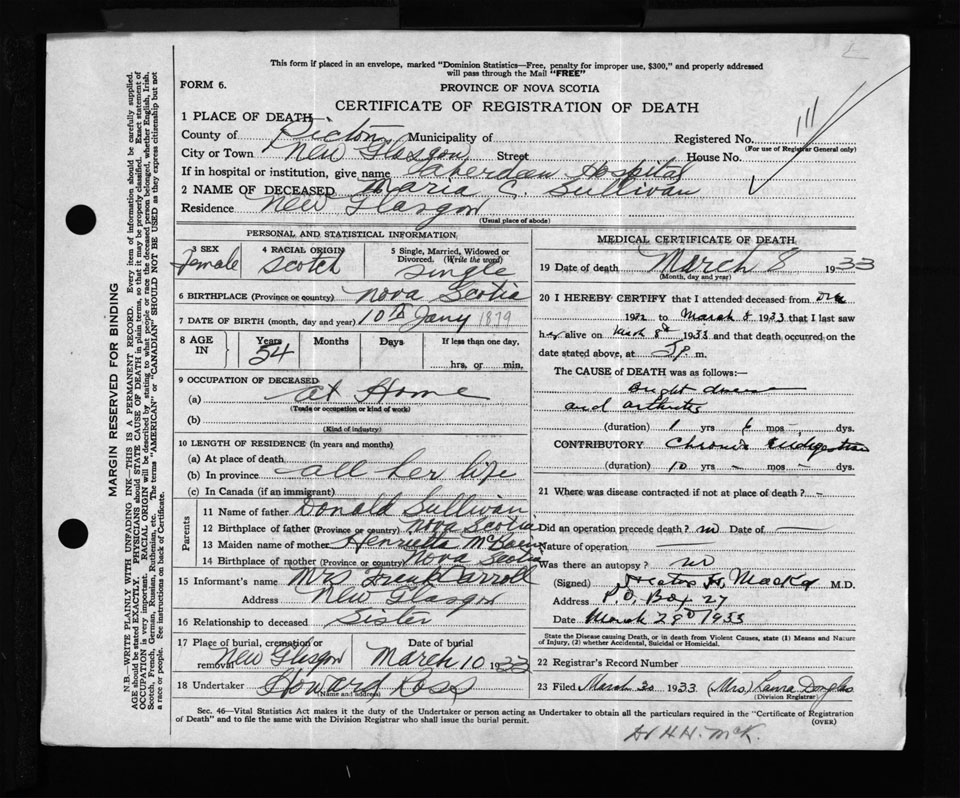 This form if placed in an envelope, marked "Dominion Statistics—Free, penalty for improper use, $300," and properly addressed
will pass through the Mail "FREE"
FORM 6.
PROVINCE OF NOVA SCOTIA
CERTIFICATE OF REGISTRATION OF DEATH
1 PLACE OF DEATH
County of Pictou Municipality of Registered No. 111
(For use of Registrar General only)
City or Town New Glasgow Street House No.
If in hospital or institution, give name Aberdeen Hospital
2 NAME OF DECEASED Maria C. Sullivan
Residence New Glasgow
(Usual place of abode)
PERSONAL AND STATISTICAL INFORMATION
3 SEX female
4 RACIAL ORIGIN Scotch
5 Single, Married, Widowed or Divorced. (Write the word) Single
6 BIRTHPLACE (Province or country) Nova Scotia
7 DATE OF BIRTH (month, day and year) 10th Jany 1879
8 AGE IN Years 54 Months Days If less than one day, hrs. or min.
9 OCCUPATION OF DECEASED
(a) at Home
(Trade or occupation or kind of work)
(b)
(Kind of industry)
10 LENGTH OF RESIDENCE (in years and months)
(a) At place of death
(b) In province all her life
(c) In Canada (if an immigrant)
Parents
11 Name of father Donald Sullivan
12 Birthplace of father (Province or country) Nova Scotia
13 Maiden name of mother Henrietta
14 Birthplace of mother (Province or country) Nova Scotia
15 Informant's name Mrs Frank Carroll
Address New Glasgow
16 Relationship to deceased Sister
17 Place of burial, cremation or removal New Glasgow Date of burial March 10 1933
18 Undertaker Howard Ross
(Name and address)
MEDICAL CERTIFICATE OF DEATH
19 Date of death March 8 1933
(Month, day and year)
20 I HEREBY CERTIFY that I attended deceased from
to March 8 1933 that I last saw
her alive on March 8th 1933 and that death occurred on the
date stated above, at P. m.
The CAUSE of DEATH was as follows:—
Bright disease
and arthritis
(duration) 1 yrs 6 mos - dys.
CONTRIBUTORY Chronic Indigestion
(duration) 10 yrs - mos - dys.
21 Where was disease contracted if not at place of death? -
Did an operation precede death? no Date of
Nature of operation
Was there an autopsy? no
(Signed) M.D.
Address P.O. Box 27
Date March 29th 1933
State the Disease causing Death, or in death from Violent Causes, state (1) Means and Nature
of Injury, (2) whether Accidental, Suicidal or Homicidal.
22 Registrar's Record Number
23 Filed March 30 1933 (Mrs) Laura Douglas
(Division Registrar)
Sec. 46—Vital Statistics Act makes it the duty of the Undertaker or person acting as Undertaker to obtain all the particulars required in the "Certificate of Registration
of Death" and to file the same with the Division Registrar who shall issue the burial permit.
(OVER)
H.H. McK.
MARGIN RESERVED FOR BINDING
N.B.—WRITE PLAINLY WITH UNFADING INK—THIS IS A PERMANENT RECORD. Every item of information should be carefully supplied.
AGE should be stated EXACTLY. PHYSICIANS should STATE CAUSE OF DEATH in plain terms, so that it may be properly classified. Exact statement of
OCCUPATION is very important. RACIAL ORIGIN will be described by stating to what people or race the deceased person belonged, whether English, Irish,
Scotch, French, German, Russian, Ruthenian, etc. The terms "AMERICAN" or "CANADIAN" SHOULD NOT BE USED as they express citizenship but not
a race or people. See instructions on back of Certificate.